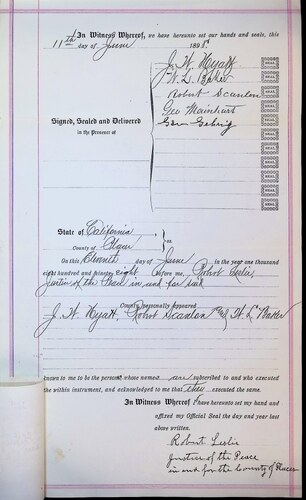 In Witness Whereof, we have hereunto set our hands and seals, this
11th day of June 1898.
J. W. Hyatt SEAL
W. L. Baker SEAL
Robert Scanlon SEAL
Geo Mainhart SEAL
Geo Gehrig SEAL
Signed, Sealed and Delivered
in the Presence of
SEAL
SEAL
SEAL
SEAL
SEAL
SEAL
State of California
County of Placer } ss
On this Eleventh day of June in the year one thousand
eight hundred and ninety Eight before me, Robert Leslie
Justice of the Peace in and for said
County personally appeared
J. W. Hyatt, Robert Scanlon and W. L. Baker
known to me to be the persons whose names are subscribed to and who executed
the within instrument, and acknowledged to me that they executed the same.
In Witness Whereof I have hereunto set my hand and
affixed my Official Seal the day and year last
above written.
Robert Leslie
Justice of the Peace
in and for the County of Placer